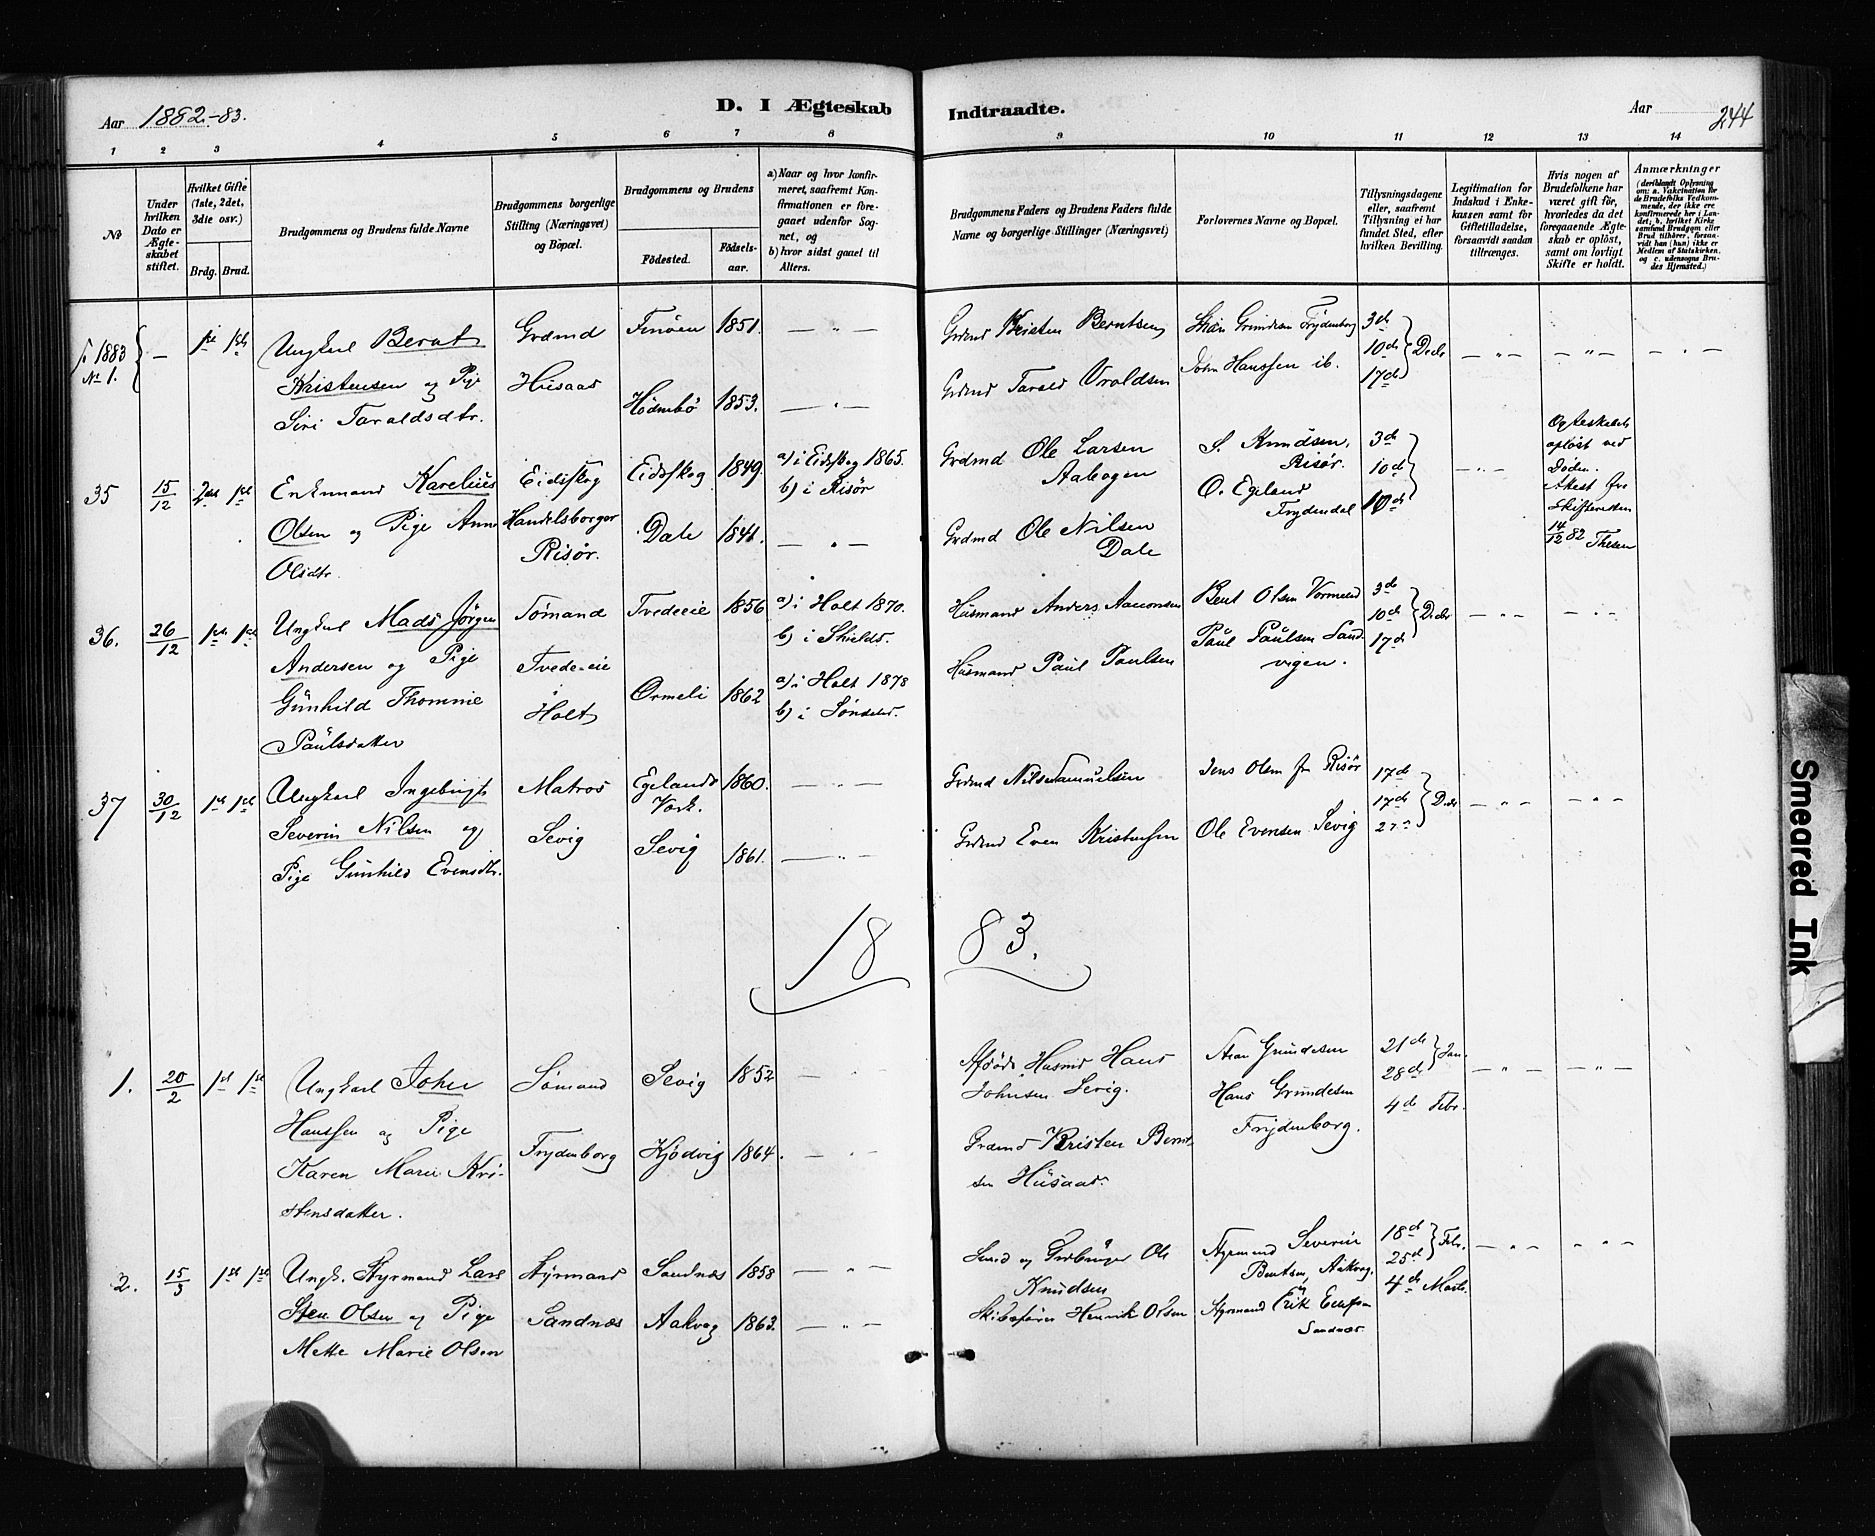 Aar 1882-83.
D. I Ægteskab Indtraadte.
Aar 244
1 2 3 4 5 6 7 8 9 10 11 12 13 14
No
Under hvilken Dato er Ægteskabet stiftet.
Hvilket Gifte (1ste, 2det, 3die osv.)
Brdg. Brud.
Brudgommens og Brudens fulde Navne
Brudgommens borgerlige Stilling (Næringsvei) og Bopæl.
Brudgommens og Brudens
Födested.
Födselsaar.
a) Naar og hvor konfirmeret, saafremt Konfirmationen er foregaaet udenfor Sognet, og
b) hvor sidst gaaet til Alters.
Brudgommens Faders og Brudens Faders fulde Navne og borgerlige Stillinger (Næringsvei)
Forlovernes Navne og Bopæl.
Tillysningsdagene eller, saafremt Tillysning ei har fundet Sted, efter hvilken Bevilling.
Legitimation for Indskud i Enkekassen samt for Giftetilladelse, forsaavidt saadan tiltrænges.
Hvis nogen af Brudefolkene har været gift før, hvorledes da det foregaaende Ægteskab er oplöst, samt om lovligt Skifte er holdt.
Anmærkninger
(deriblandt Oplysning om: a. Vakcination for Brudefolks Vedkommende, der ikke ere konfirmerede her i Landet; b. hvilket Kirkesamfund Brudgom eller Brud tilhörer, forsaavidt han (hun) ikke er Medlem af Statskirken, og c. udensogns Brudes Hjemsted.)
1883 No 1. — 1ste 1ste
Ungkarl Bernt
Kristensen og Pige
Siri Taraldsdtr.
Grdmd
Husaas
Finöen 1851. — " —
Hödnebö 1853. — " —
Grdmd Kristen Berntsen
Grdmd Tarald Oroldsen
Stian Grundesen Frydenborg
John Hanssen ib.
3de
10de
17de
Decbr
— " — — " — — " —
35 15/12 2det 1ste
Enkemand Karelius
Olsen og Pige Anne
Olsdtr.
Eidsskog
Handelsborger
Risør.
Eidsskog 1849. a) i Eidsskog 1865.
b) i Risör
Dale 1841. — " —
Grdmd Ole Larsen
Aabogen
Grdmd Ole Nilsen
Dale
S. Knudsen,
Risør.
O. Egeland
Frydendal
3de
10de
10de
— " —
Ægteskabet
opløst ved
Døden.
Attest fra
Skifteretten
14/12 82 Thesen
36. 26/12 1ste 1ste
Ungkarl Mads Jörgen
Andersen og Pige
Gunhild Thomine
Paulsdatter
Sömand
Tvede-eie
Holt
Tvedeeie 1856 a) i Holt 1870.
b) i Shields.
Ormeli 1862 a) i Holt 1878
b) i Söndeled.
Husmand Anders Aanonsen
Husmand Paul Paulsen
Bent Olsen Vormeli
Paul Paulsen Sand-
vigen.
3de
10de
17de
Decbr
— " — — " —
37 30/12 1ste 1ste
Ungkarl Ingebrigt
Severin Nilsen og
Pige Gunhild Evensdtr.
Matros
Sevig
Egelands
Værk.
1860. — " —
Sevig 1861. — " —
Grdmd Nils Samuelsen
Grdmd Even Kristensen
Jens Olsen fra Risör
Ole Evensen Sevig
17de
17de
Decbr
— " — — " —
1883.
1. 20/2 1ste 1ste
Ungkarl John
Hanssen og Pige
Karen Marie Kri-
stensdatter.
Sömand
Frydenborg
Sevig 1852 — " —
Kjödvig 1864. — " —
Afdöde Husmd Hans
Johnsen Sevig.
Grdmd Kristen Bernt-
sen Husaas.
Stian Grundesen
Hans Grundesen
Frydenborg.
21de
28de
Jan.
4de Febr.
— " — — " —
2. 15/3 1ste 1ste
Ungk. Styrmand Lars
Sten Olsen og Pige
Mette Marie Olsen
Styrmand
Sandnæs
Sandnæs 1858 — " —
Aakvag 1863. — " —
Lænd og Grdbruger Ole
Knudsen
Skibsförer Henrik Olsen
Styrmand Severin
Bentsen, Aakvag.
Styrmand Erik
Sandnæs.
18de
25de
Febr.
4de Marts.
— " — — " —
Smeared Ink